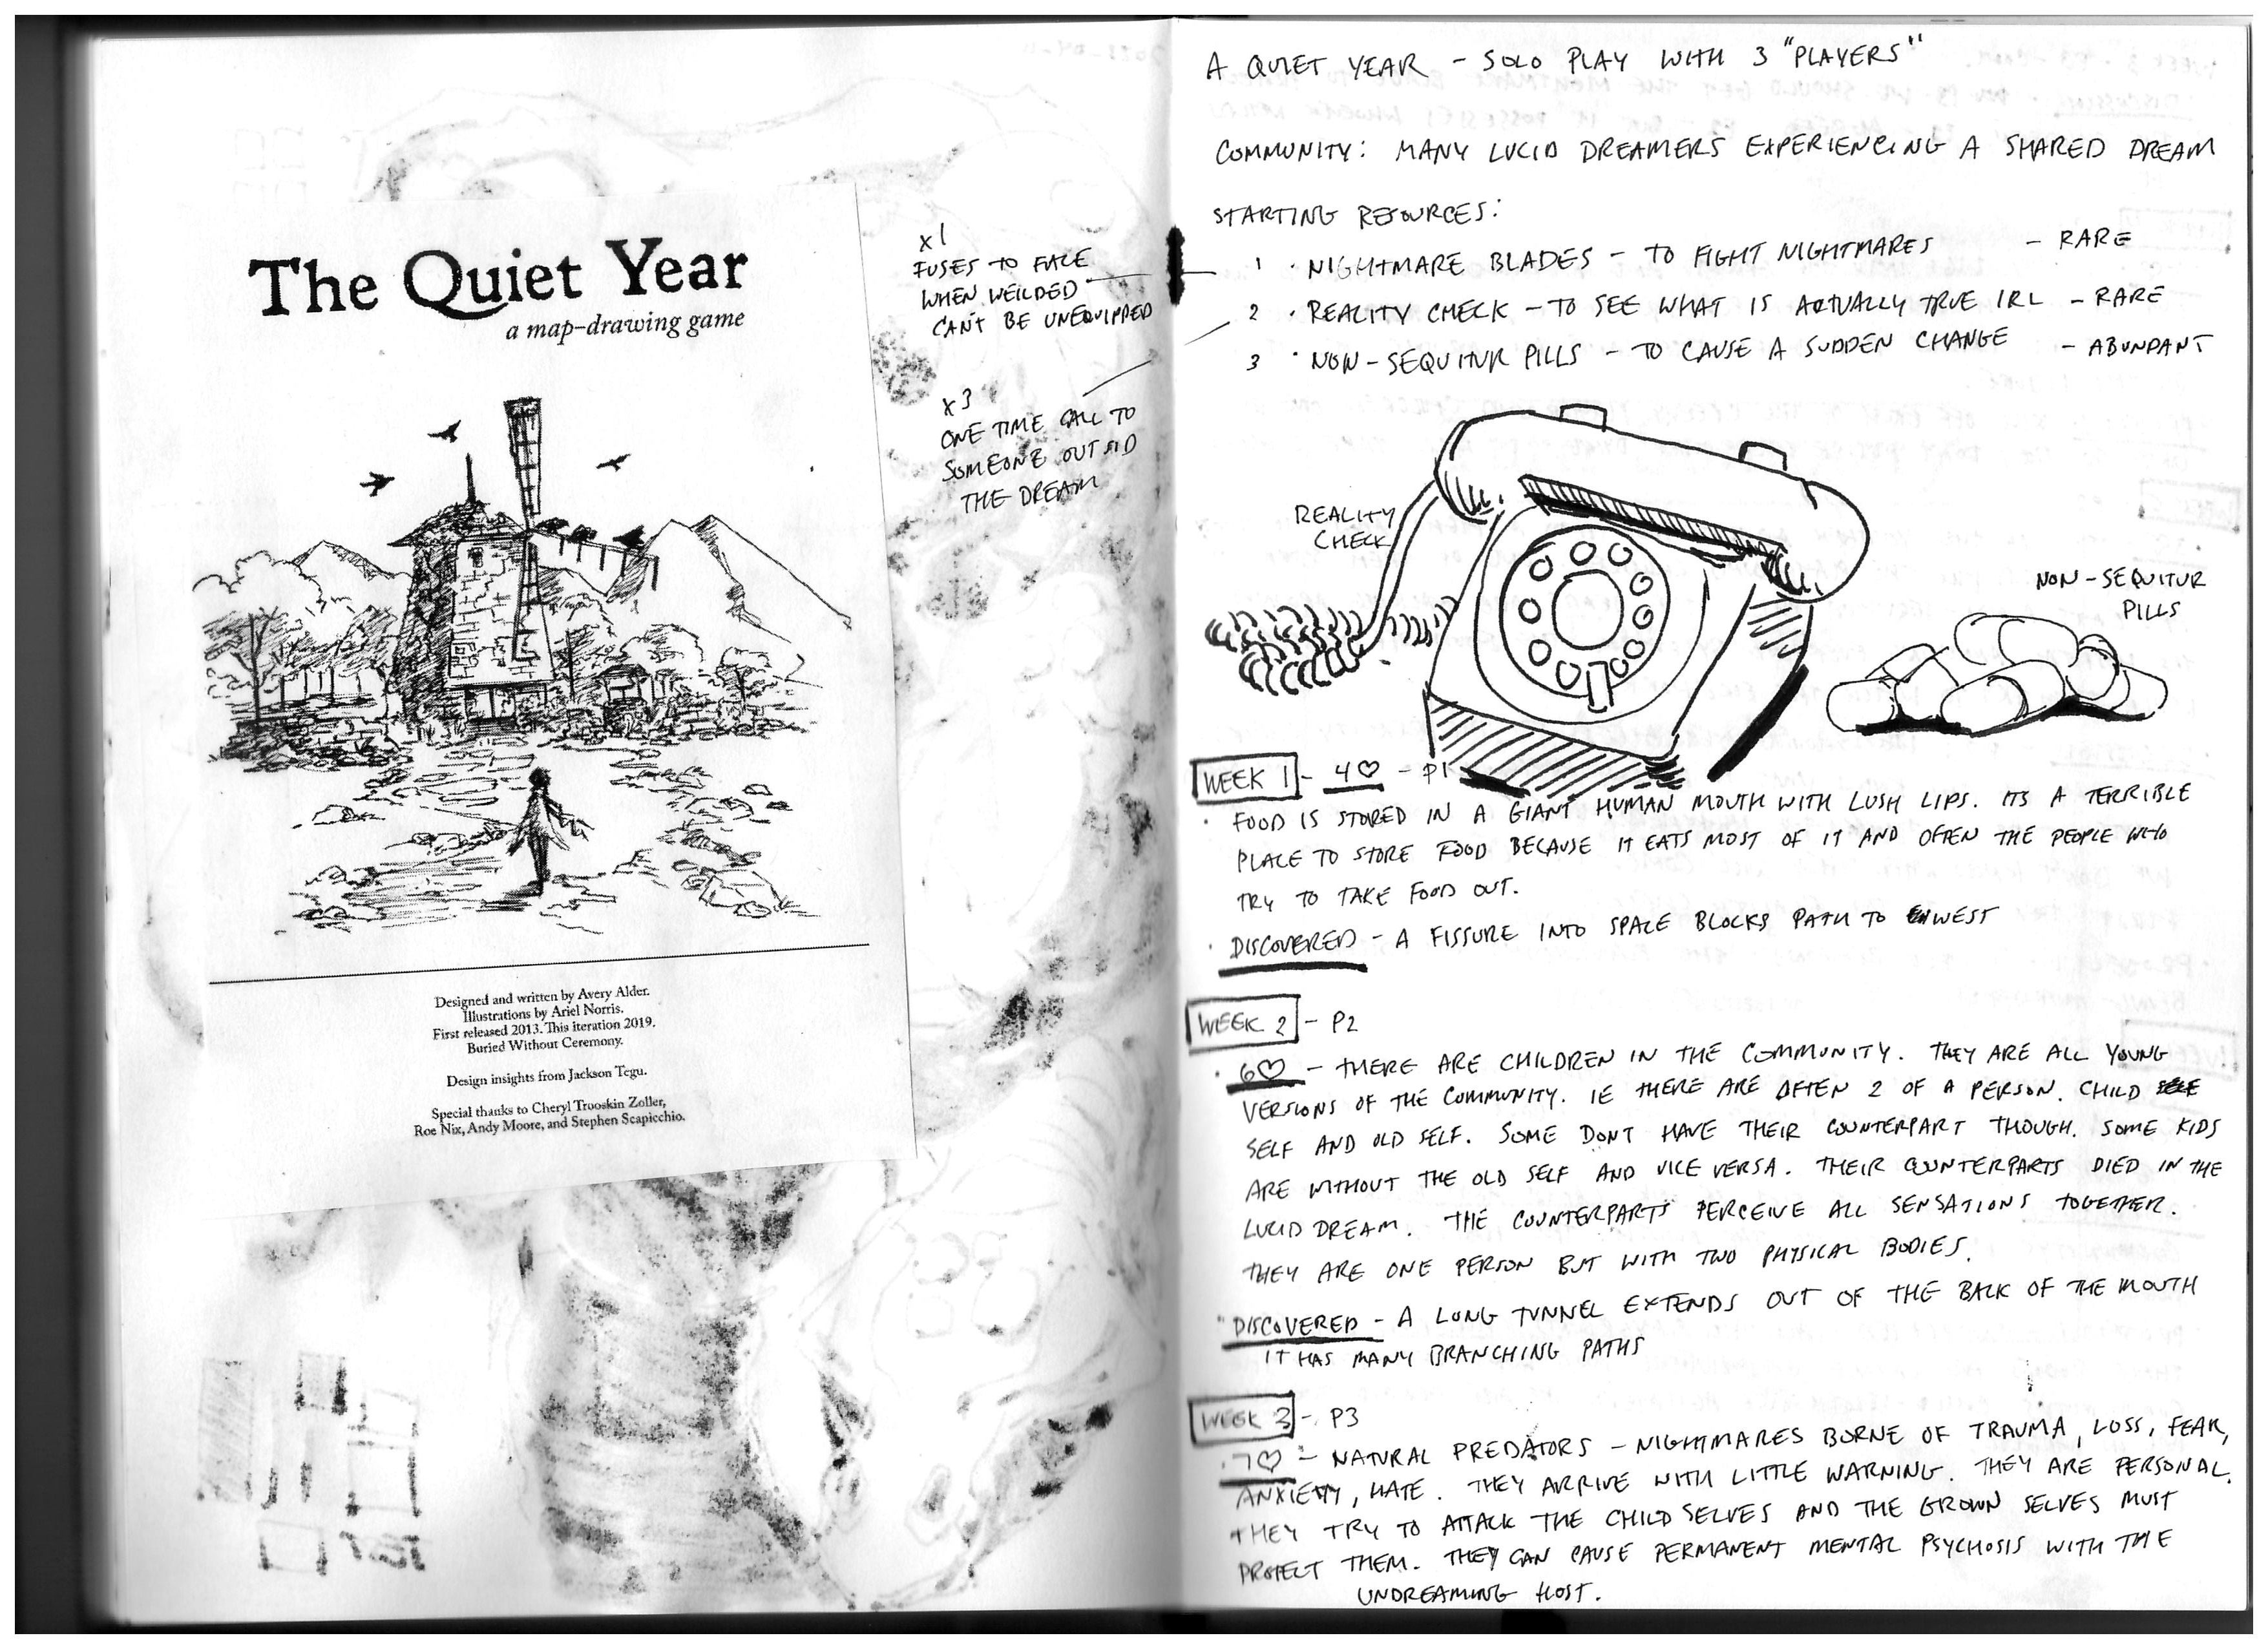 The Quiet Year
a map-drawing game
Designed and written by Avery Alder.
Illustrations by Ariel Norris.
First released 2013. This iteration 2019.
Buried Without Ceremony.
Design insights from Jackson Tegu.
Special thanks to Cheryl Trooskin Zoller,
Roe Nix, Andy Moore, and Stephen Scapicchio.
x1
FUSES TO FACE
WHEN WEILDED
CAN'T BE UNEQUIPPED
x3
ONE TIME CALL TO
SOMEONE OUTSID
THE DREAM
A QUIET YEAR - SOLO PLAY WITH 3 "PLAYERS"
COMMUNITY: MANY LUCID DREAMERS EXPERIENCING A SHARED DREAM
STARTING RESOURCES:
1 · NIGHTMARE BLADES - TO FIGHT NIGHTMARES - RARE
2 · REALITY CHECK - TO SEE WHAT IS ACTUALLY TRUE IRL - RARE
3 · NON-SEQUITUR PILLS - TO CAUSE A SUDDEN CHANGE - ABUNDANT
REALITY
CHECK
NON-SEQUITUR
PILLS
WEEK 1 - 4♡ - P1
· FOOD IS STORED IN A GIANT HUMAN MOUTH WITH LUSH LIPS. ITS A TERRIBLE
PLACE TO STORE FOOD BECAUSE IT EATS MOST OF IT AND OFTEN THE PEOPLE WHO
TRY TO TAKE FOOD OUT.
· DISCOVERED - A FISSURE INTO SPACE BLOCKS PATH TO WEST
WEEK 2 - P2
· 6♡ - THERE ARE CHILDREN IN THE COMMUNITY. THEY ARE ALL YOUNG
VERSIONS OF THE COMMUNITY. IE THERE ARE OFTEN 2 OF A PERSON. CHILD
SELF AND OLD SELF. SOME DONT HAVE THEIR COUNTERPART THOUGH. SOME KIDS
ARE WITHOUT THE OLD SELF AND VICE VERSA. THEIR COUNTERPARTS DIED IN THE
LUCID DREAM. THE COUNTERPARTS PERCEIVE ALL SENSATIONS TOGETHER.
THEY ARE ONE PERSON BUT WITH TWO PHYSICAL BODIES.
· DISCOVERED - A LONG TUNNEL EXTENDS OUT OF THE BACK OF THE MOUTH
IT HAS MANY BRANCHING PATHS
WEEK 3 - P3
· 7♡ - NATURAL PREDATORS - NIGHTMARES BORNE OF TRAUMA, LOSS, FEAR,
ANXIETY, HATE. THEY ARRIVE WITH LITTLE WARNING. THEY ARE PERSONAL.
THEY TRY TO ATTACK THE CHILD SELVES AND THE GROWN SELVES MUST
PROTECT THEM. THEY CAN CAUSE PERMANENT MENTAL PSYCHOSIS WITH THE
UNDREAMING HOST.